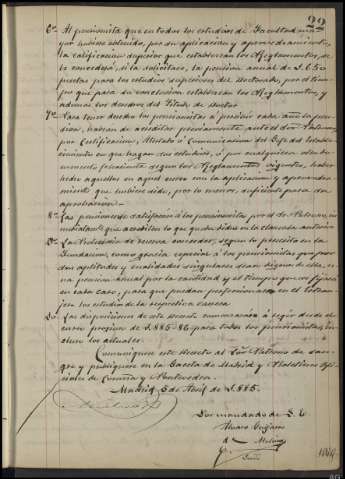 22
6º Al pensionista que en todos los estudios de Facultad ma-
yor hubiere obtenido, por su aplicacion y aprovechamiento,
la calificacion superior que establezcan los Reglamentos, se
le concederá, si la solicitare, la pension anual de
pesetas para los estudios superiores del Doctorado, por el tiem-
po que para su conclusion establezcan los Reglamentos, y
ademas los derechos del Título de Doctor
7º Para tener derecho los pensionistas á percibir cada año la pen-
sion, habrán de acreditar previamente ante el Sor Patrono,
por Certificacion, Atestado ó Comunicacion del Gefe del Estable-
cimiento en que hagan sus estudios, ó por cualquiera otro do-
cumento fehaciente segun los Reglamentos vigentes, haber
hecho aquellos en aquel curso con la aplicacion y aprovecha-
miento que hubiese sido, por lo menos, suficiente para su
aprobacion
8º Las pensiones se satisfarán á los pensionistas por el Sor Patrono, en
que acrediten lo que queda dicho en la clausula anterior
9º La Proteccion se reserva conceder, segun lo prescrito en la
Fundacion, como gracia especial á los pensionistas que por
sus aptitudes y cualidades singulares sean dignos de ella, u-
na pension anual por la cantidad y el tiempo que se fijará
en cada caso, para que puedan perfeccionar en el Estran-
jero los estudios de la respectiva carrera
10. Las disposiciones de este decreto comenzarán á regir desde el
curso proximo de 1.885-86 para todos los pensionistas, in-
cluso los actuales.
Comuniquese este decreto al Sor Patrono de San-
y publíquese en la Gaceta de Madrid y Boletines Ofi-
ciales de Coruña y Pontevedra.
Madrid 5 de Abril de 1.885.
Por mandado de S. E.
Alvaro
de Molina